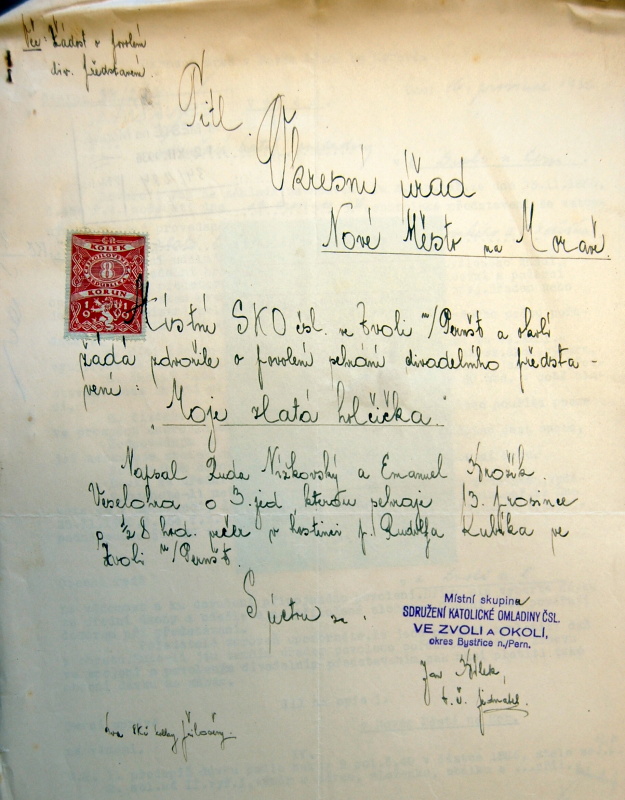 Věc: Žádost o povolení
div. představení.
Titl.
Okresní úřad
Nové Město na Moravě.
KOLEK
8
KORUN
Místní SKO čsl. ve Zvoli n/Pernšt a okolí
žádá zdvořile o povolení sehrání divadelního předsta-
vení:
"Moje zlatá holčička."
Napsal Ruda Nížkovský a Emanuel Brožík.
Veselohra o 3. jed. kterou sehraje 13. prosince
o ½ 8 hod. večer v hostinci p. Rudolfa Kubíka ve
Zvoli n/Pernšt.
S úctou za.
Místní skupina
SDRUŽENÍ KATOLICKÉ OMLADINY ČSL.
VE ZVOLI A OKOLÍ,
okres Bystřice n./Pern.
Jan
t. č. jednatel.
Dva kolky přiloženy.